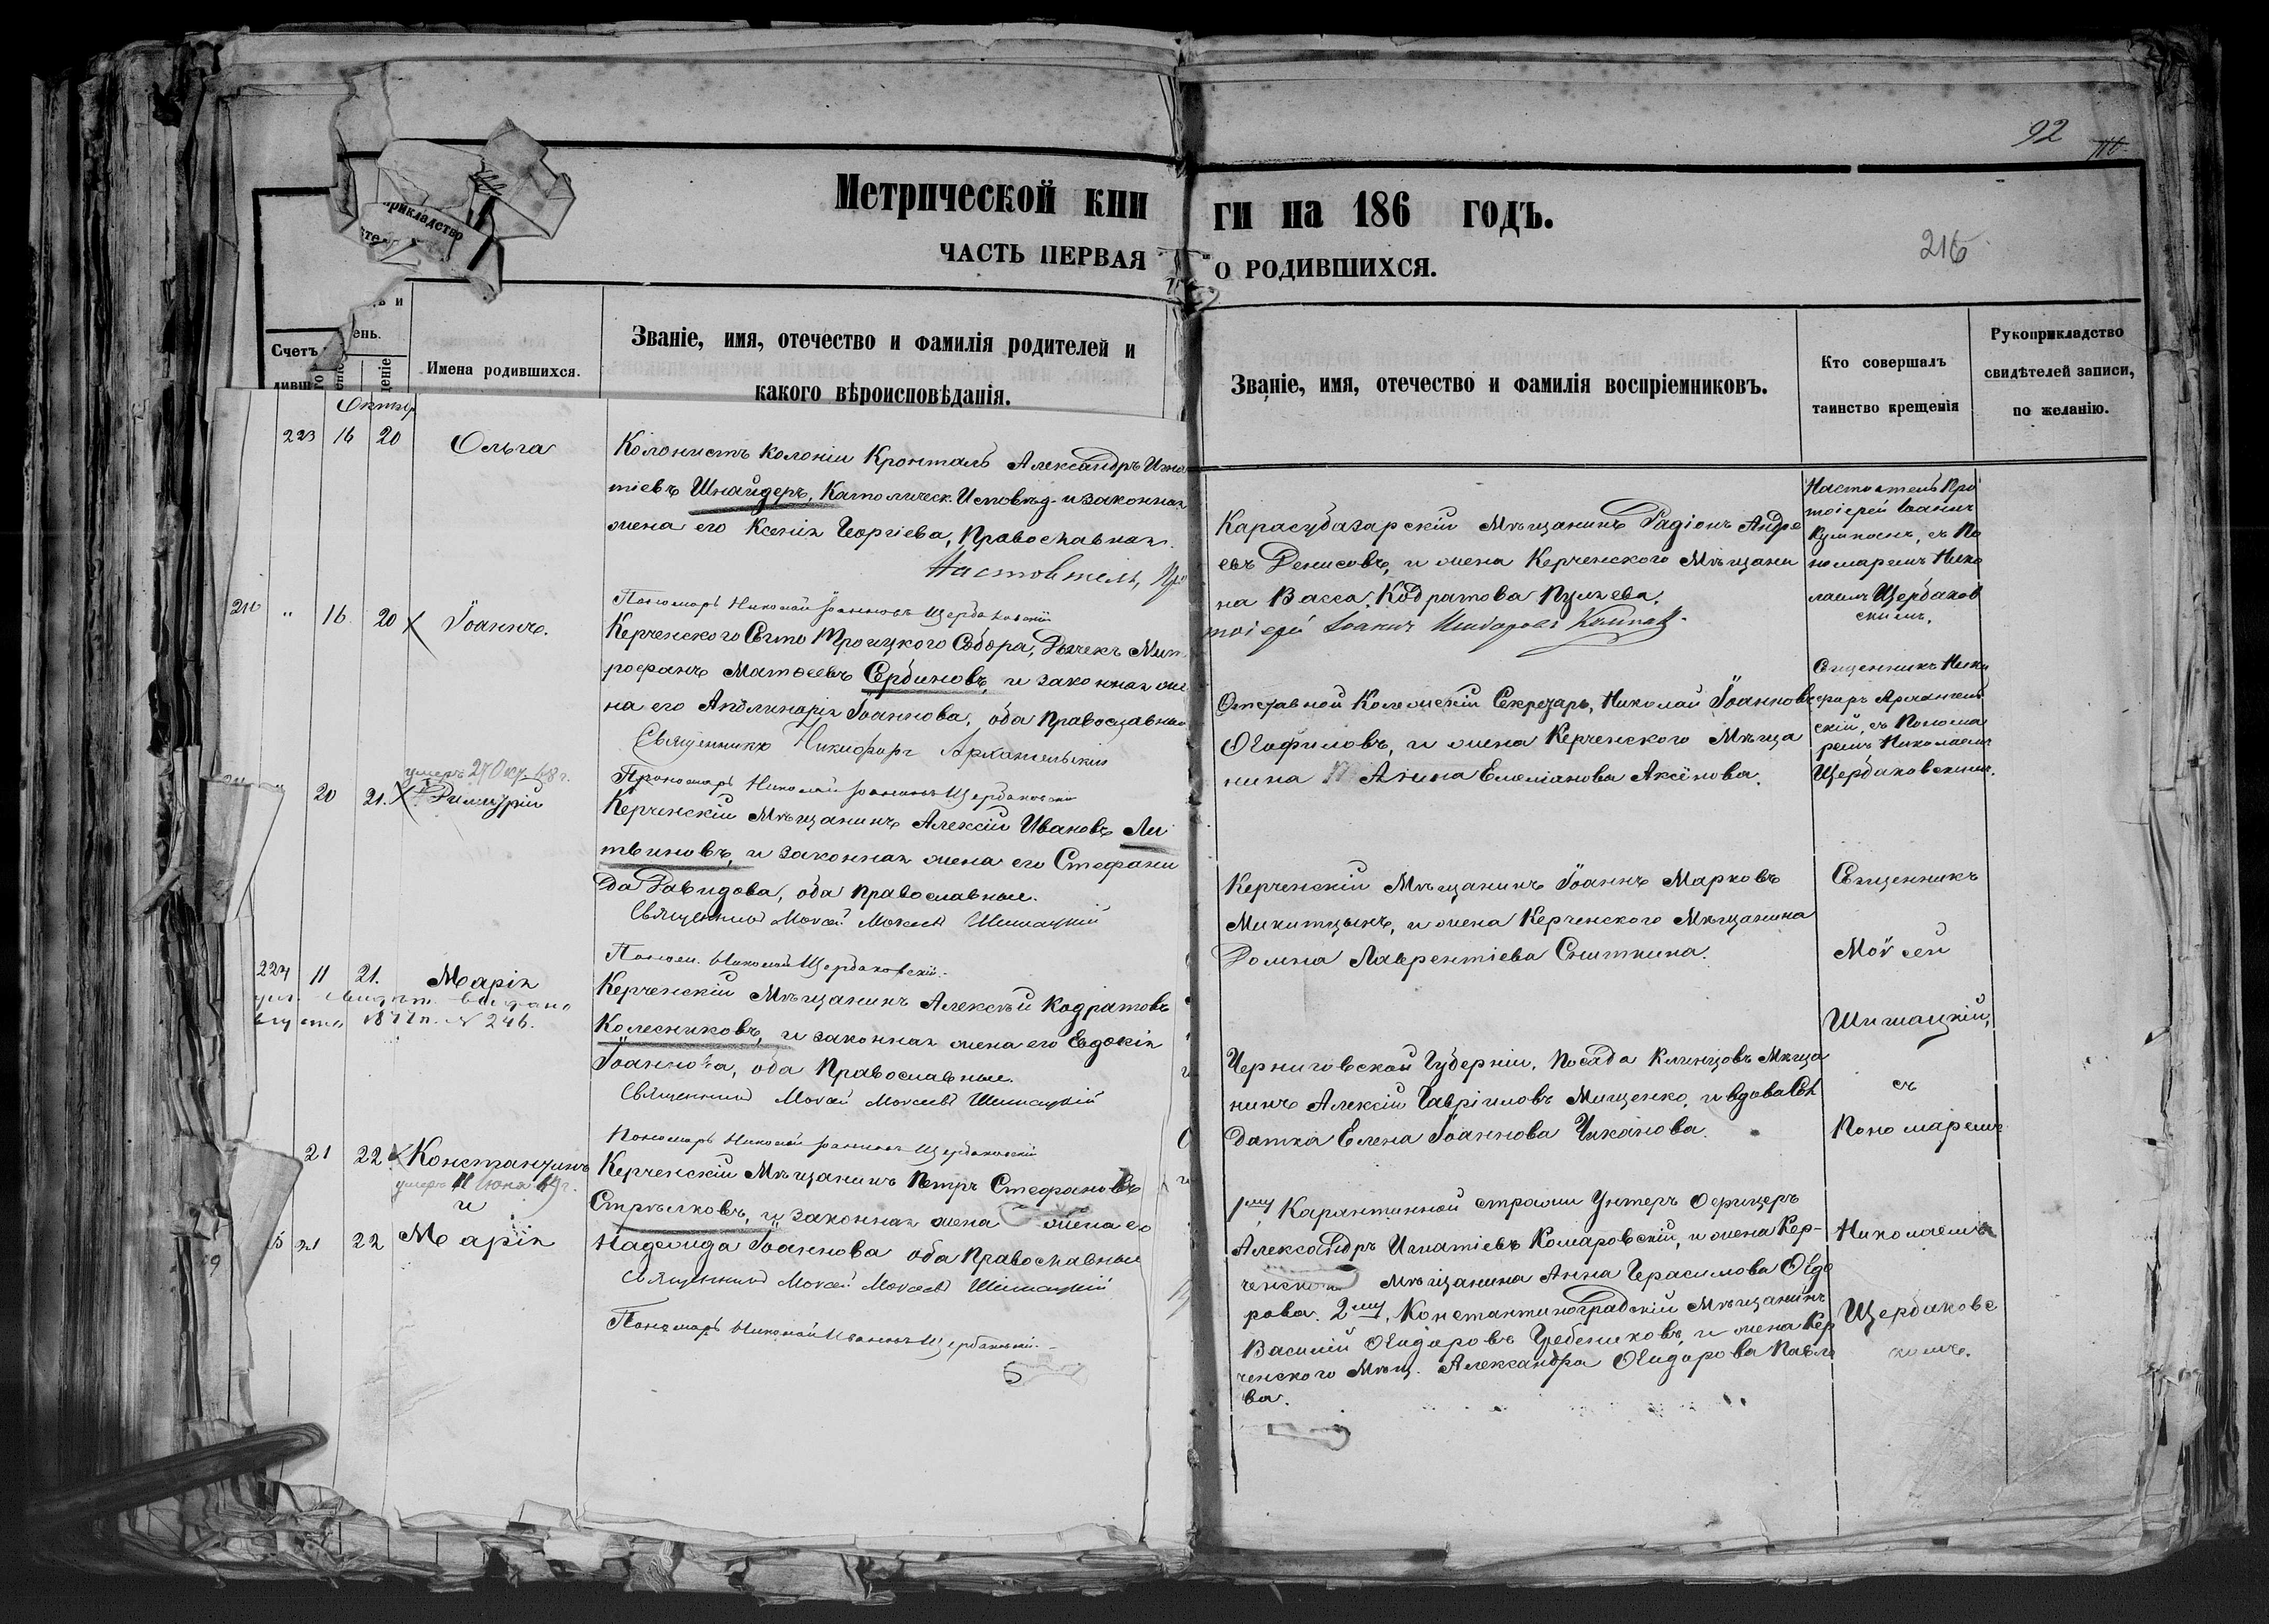 92
216
Метрической кни
ги на 186 годъ.
ЧАСТЬ ПЕРВАЯ
О РОДИВШИХСЯ.
прикладство
Счетъ
ень.
Имена родившихся.
Званіе, имя, отечество и фамилія родителей и
какого вѣроисповѣданія.
Званіе, имя, отечество и фамилія воспріемниковъ.
Кто совершалъ
таинство крещенія
Рукоприкладство
свидѣтелей записи,
по желанію.
223 16 20 Ольга
Колонистъ Колоніи Кронталь Александръ Игна
тіевъ Шнайдеръ, Католическ. Исповѣд. и законная
жена его Ксенія Георгіева, Православная.
Настоятель, Про
тоіерей Іоаннъ
Карасубазарскій Мѣщанинъ Радіонъ Андре
евъ Денисовъ, и жена Керченского Мѣщани
на Васса Кодратова
Настоятель Про
тоіерей Іоаннъ
съ По
номаремъ Нико
лаемъ Щербаков
скимъ.
16 20 Іоаннъ.
Пономарь Николай Іоанновъ Щербаковскій
Керченского Свято Троицкого Собора, Дьячекъ Мит
рофанъ Матѳеевъ Сербиновъ, и законная же
на его Аполинарія Іоаннова, оба Православные
Священникъ Никифоръ Архангельскій
Отставной Колежскій Секретарь, Николай Іоанновъ
Ѳеофиловъ, и жена Керченского Мѣща
нина Анна Емеліанова Аксёнова.
Священникъ Ники
форъ Архангель
скій, съ Понома
ремъ Николаемъ
Щербаковскимъ.
умеръ 27 Окт. 68 г.
20 21. Димитрій
Пономарь Николай Іоанновъ Щербаковскій
Керченскій Мѣщанинъ Алексій Ивановъ Ли
твиновъ, и законная жена его Стефани
да Давидова, оба Православные.
Священникъ Моѵсей Моѵсеевъ Шишацкій
Керченскій Мѣщанинъ Іоаннъ Марковъ
Микитцынъ, и жена Керченского Мѣщанина
Домна Лаврентіева Сниткина.
Священникъ
Моѵсей
Шишацкій,
съ
Пономаремъ
Николаемъ
Щербаковс
кимъ.
224 11 21. Марія
№ 246.
Поном. Николай Щербаковскій.
Керченскій Мѣщанинъ Алексѣй Кодратовъ
Колесниковъ, и законная жена его Евдокія
Іоаннова, оба Православные.
Священникъ Моѵсей Моѵсеевъ Шишацкій
Черниговской Губерніи, Посада Клинцовъ Мѣща
нинъ Алексій Гавріиловъ Мищенко, и вдова Сол
датка Елена Іоаннова Чиканова.
21 22 Константинъ
умеръ 11 Іюня 69 г.
и
21 22 Марія
Пономарь Николай Іоанновъ Щербаковскій
Керченскій Мѣщанинъ Петръ Стефановъ
Стрѣлковъ, и законная жена жена его
Надежда Іоаннова оба Православные
Священникъ Моѵсей Моѵсеевъ Шишацкій
Пономарь Николай Іоанновъ Щербаковскій.
1му Карантинной стражи Унтеръ Офицеръ
Александръ Игнатіевъ Комаровскій, и жена Кер-
ченского Мѣщанина Анна Герасимова Ѳедо
рова. 2му, Константиноградскій Мѣщанинъ
Василій Ѳеодоровъ Гребениковъ, и жена Кер
ченского Мѣщ. Александра Ѳеодорова Павло
ва.